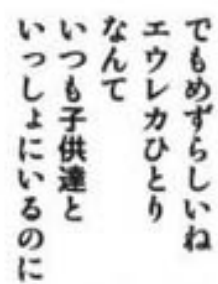 でもめずらしいね
エウレカひとり
なんて
いつも子供達と
いっしょにいるのに